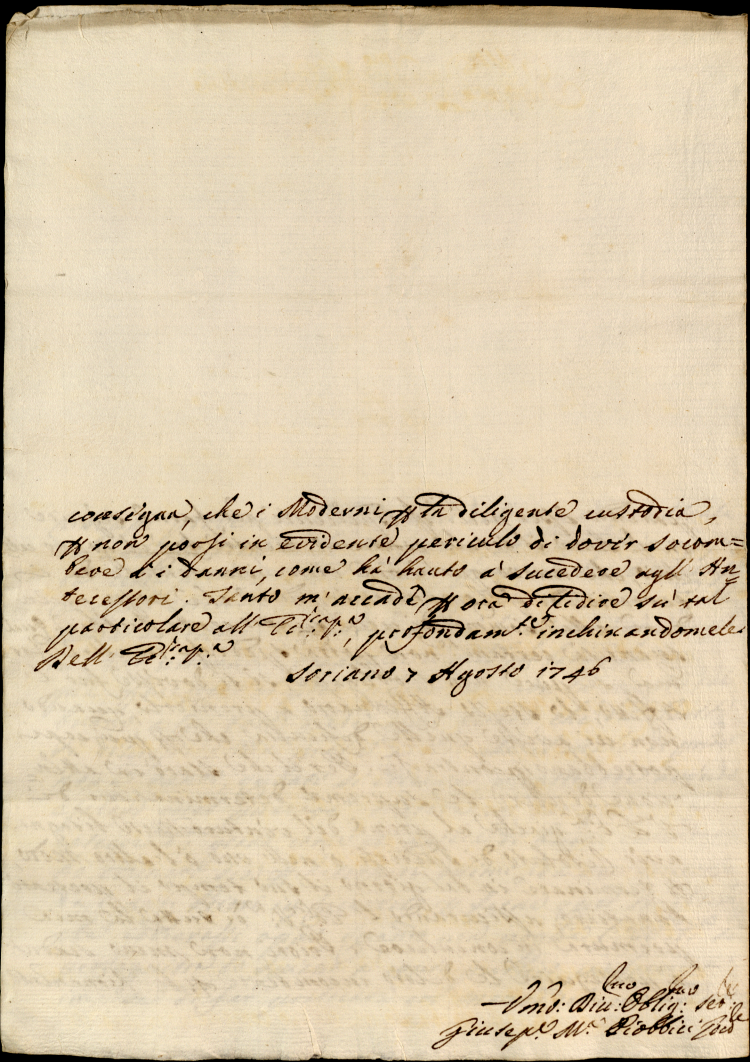 consegna, che i Moderni p la diligente custodia,
p non porsi in evidente periculo di dovir socom=
bere à i danni, come hà hauto à sucedere agl' An=
tecessori. Tanto m'accade p ora di ridire sù tal
particolare all' , profondam.te inchinandomele
Dell'
Soriano 7 Agosto 1746
Vmo: Div: Oblig: Ser:
Giusep.e M.a